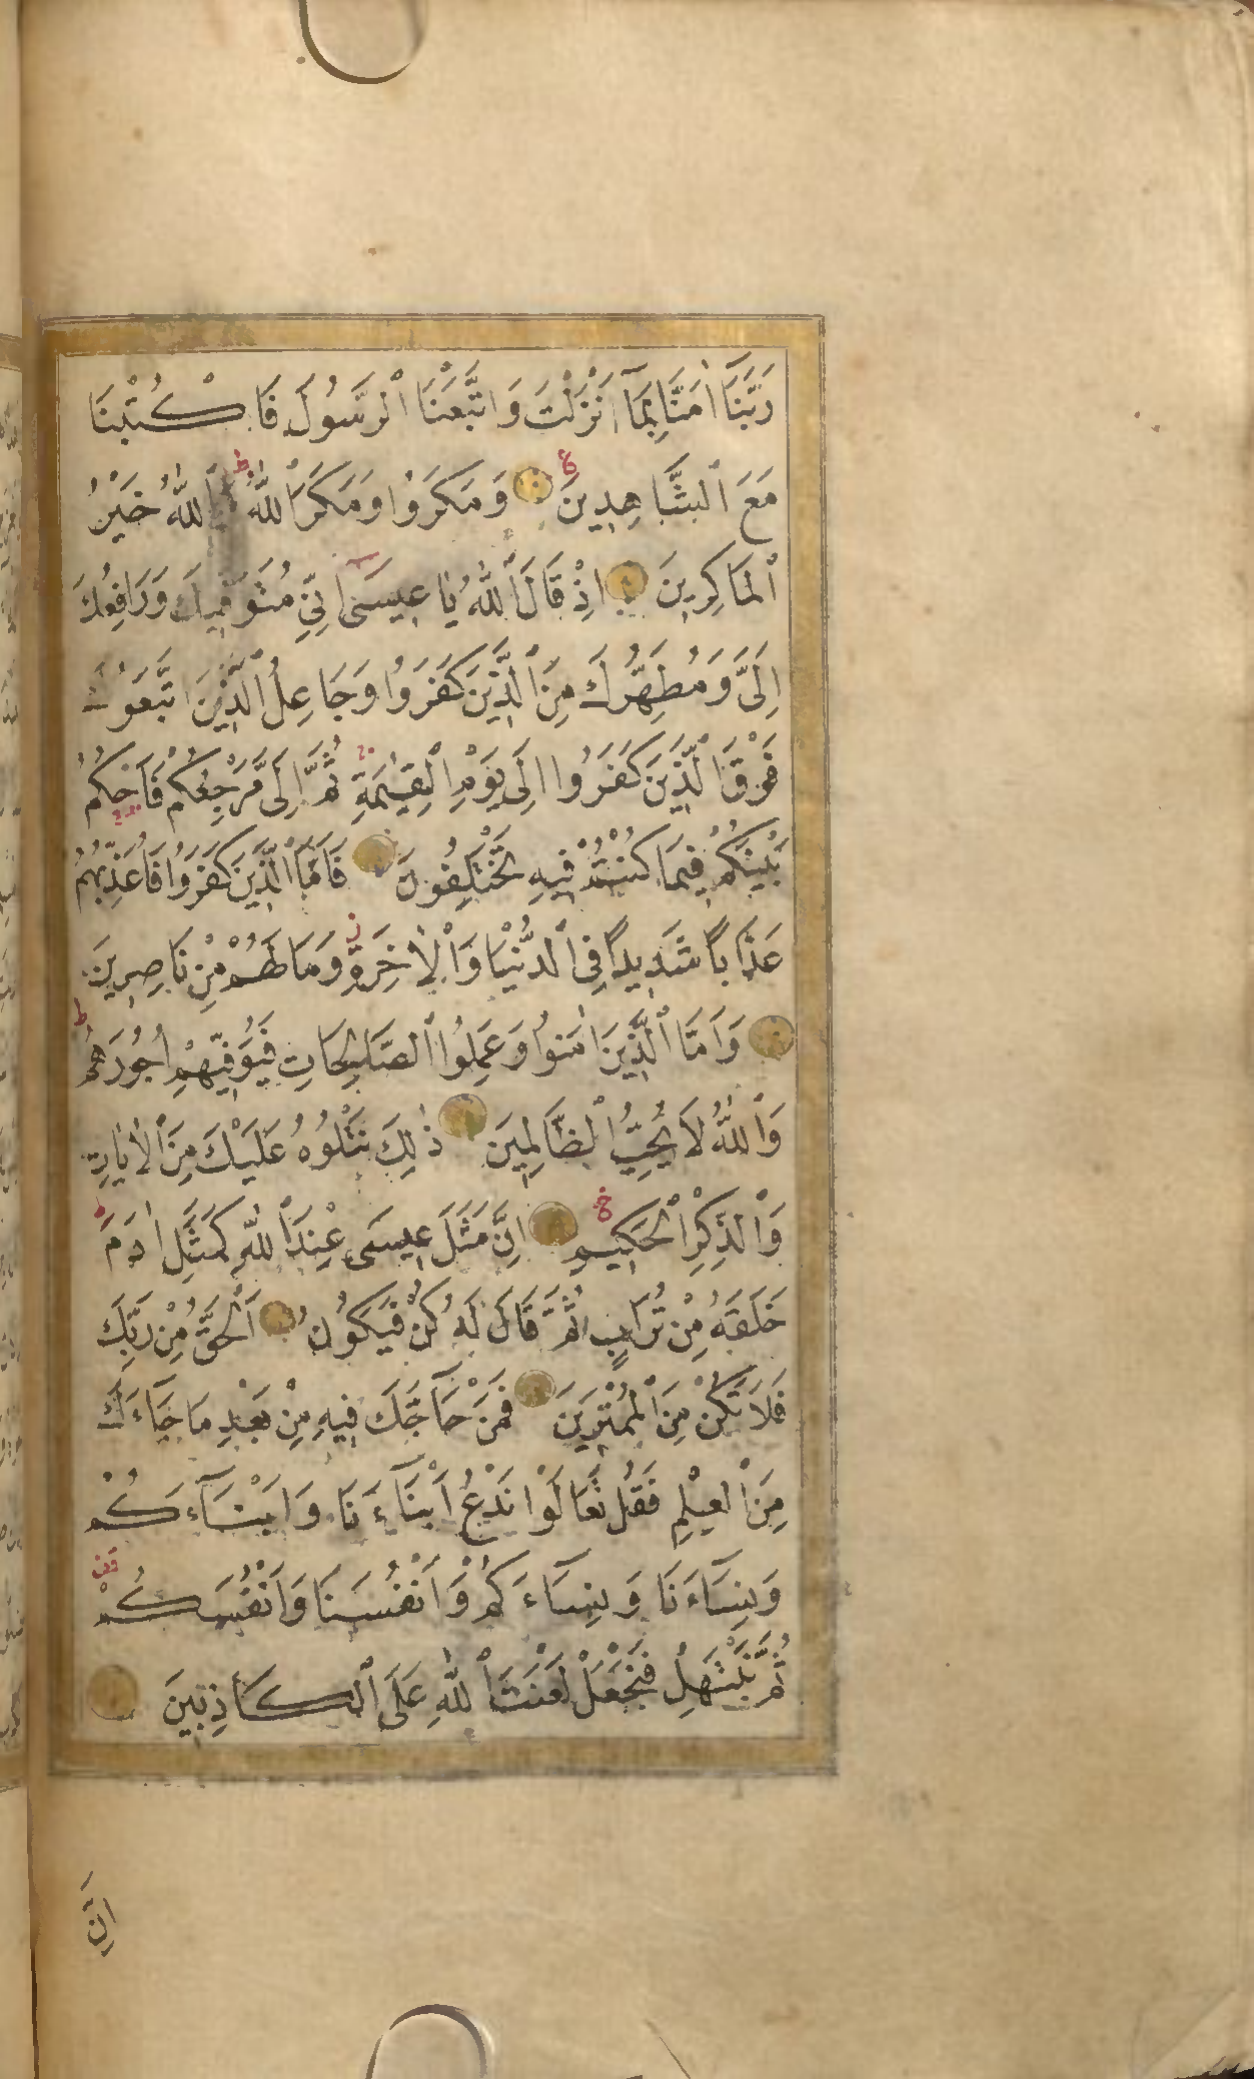 رَبَّنَا اٰمَنَّا بِمَآ اَنْزَلْتَ وَاتَّبَعْنَا الرَّسُولَ فَاكْتُبْنَا
مَعَ الشَّاهِدِينَ وَمَكَرُوا وَمَكَرَ اللّٰهُ وَاللّٰهُ خَيْرُ
الْمَاكِرِينَ اِذْ قَالَ اللّٰهُ يَا عِيسَىٓ اِنِّي مُتَوَفِّيكَ وَرَافِعُكَ
اِلَيَّ وَمُطَهِّرُكَ مِنَ الَّذِينَ كَفَرُوا وَجَاعِلُ الَّذِينَ اتَّبَعُوكَ
فَوْقَ الَّذِينَ كَفَرُوا اِلَى يَوْمِ الْقِيٰمَةِ ثُمَّ اِلَيَّ مَرْجِعُكُمْ فَاَحْكُمُ
بَيْنَكُمْ فِيمَا كُنْتُمْ فِيهِ تَخْتَلِفُونَ فَاَمَّا الَّذِينَ كَفَرُوا فَاُعَذِّبُهُمْ
عَذَابًا شَدِيدًا فِي الدُّنْيَا وَالْاٰخِرَةِ وَمَا لَهُمْ مِنْ نَاصِرِينَ
وَاَمَّا الَّذِينَ اٰمَنُوا وَعَمِلُوا الصَّالِحَاتِ فَيُوَفِّيهِمْ اُجُورَهُمْ
وَاللّٰهُ لَا يُحِبُّ الظَّالِمِينَ ذٰلِكَ نَتْلُوهُ عَلَيْكَ مِنَ الْاٰيَاتِ
وَالذِّكْرِ الْحَكِيمِ اِنَّ مَثَلَ عِيسَى عِنْدَ اللّٰهِ كَمَثَلِ اٰدَمَ
خَلَقَهُ مِنْ تُرَابٍ ثُمَّ قَالَ لَهُ كُنْ فَيَكُونُ اَلْحَقُّ مِنْ رَبِّكَ
فَلَا تَكُنْ مِنَ الْمُمْتَرِينَ فَمَنْ حَآجَّكَ فِيهِ مِنْ بَعْدِ مَا جَآءَكَ
مِنَ الْعِلْمِ فَقُلْ تَعَالَوْا نَدْعُ اَبْنَآءَنَا وَاَبْنَآءَكُمْ
وَنِسَآءَنَا وَنِسَآءَكُمْ وَاَنْفُسَنَا وَاَنْفُسَكُمْ
ثُمَّ نَبْتَهِلْ فَنَجْعَلْ لَعْنَتَ اللّٰهِ عَلَى الْكَاذِبِينَ
اِنَّ